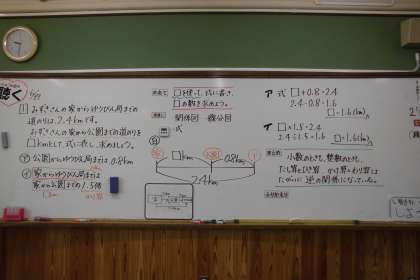 聴く
1 みずきさんの家からゆうびん局までの
道のりは、2.4kmです。
みずきさんの家から公園までの道のりを
□kmとして、式に表し、求めましょう。
ア 公園からゆうびん局までは 0.8km
イ 家からゆうびん局までは
家から公園までの1.5倍
□km
□を使って、式に表し、
□の数を求めよう。
関係図
線分図
式
□km
0.8km
2.4km
ア 式 □+0.8=2.4
2.4-0.8=1.6
□=1.6(km)
イ □×1.5=2.4
2.4÷1.5=1.6
□=1.6(km)
小数のときも、整数のときも、
たし算とひき算、かけ算とわり算は
たがいに逆の関係になっている。